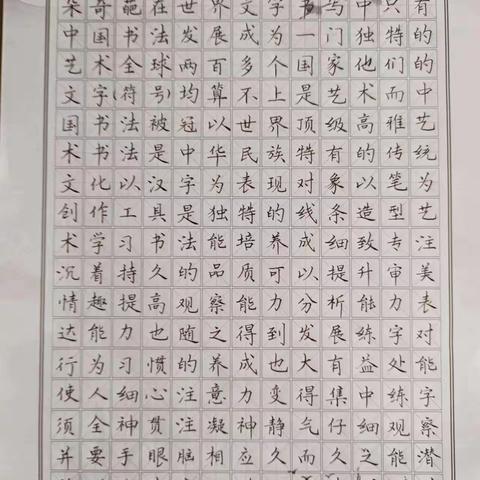 奇葩在世界文字书写中只有
中国书法发展成为一门独特的
艺术全球两百多个国家他们的
文字(符号)均算不上是艺术而中
国书法被冠以世界顶级高雅艺
术书法是中华民族特有的传统
文化以汉字为表现对象以笔为
创作工具是独特的线条造型艺
术学习书法能培养成细致专注
沉着持久的品质可以提升审美
情趣提高观察能力分析能力表
达能力也随之得到发展练字对
行为习惯的养成也大有益处能
使人细心注意力变得集中练字
须全神贯注凝神静气仔细观察
并要手眼脑相应久而久之能潜